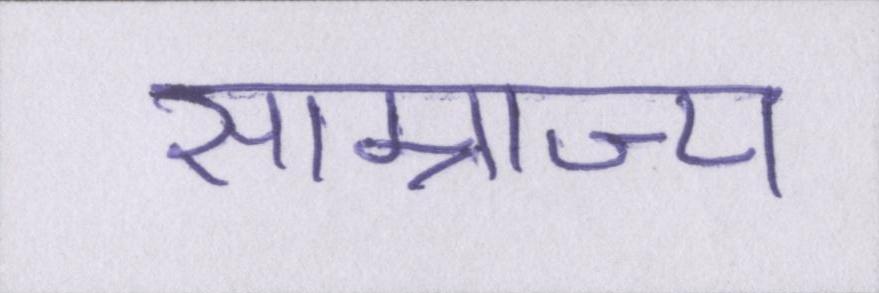 साम्राज्य